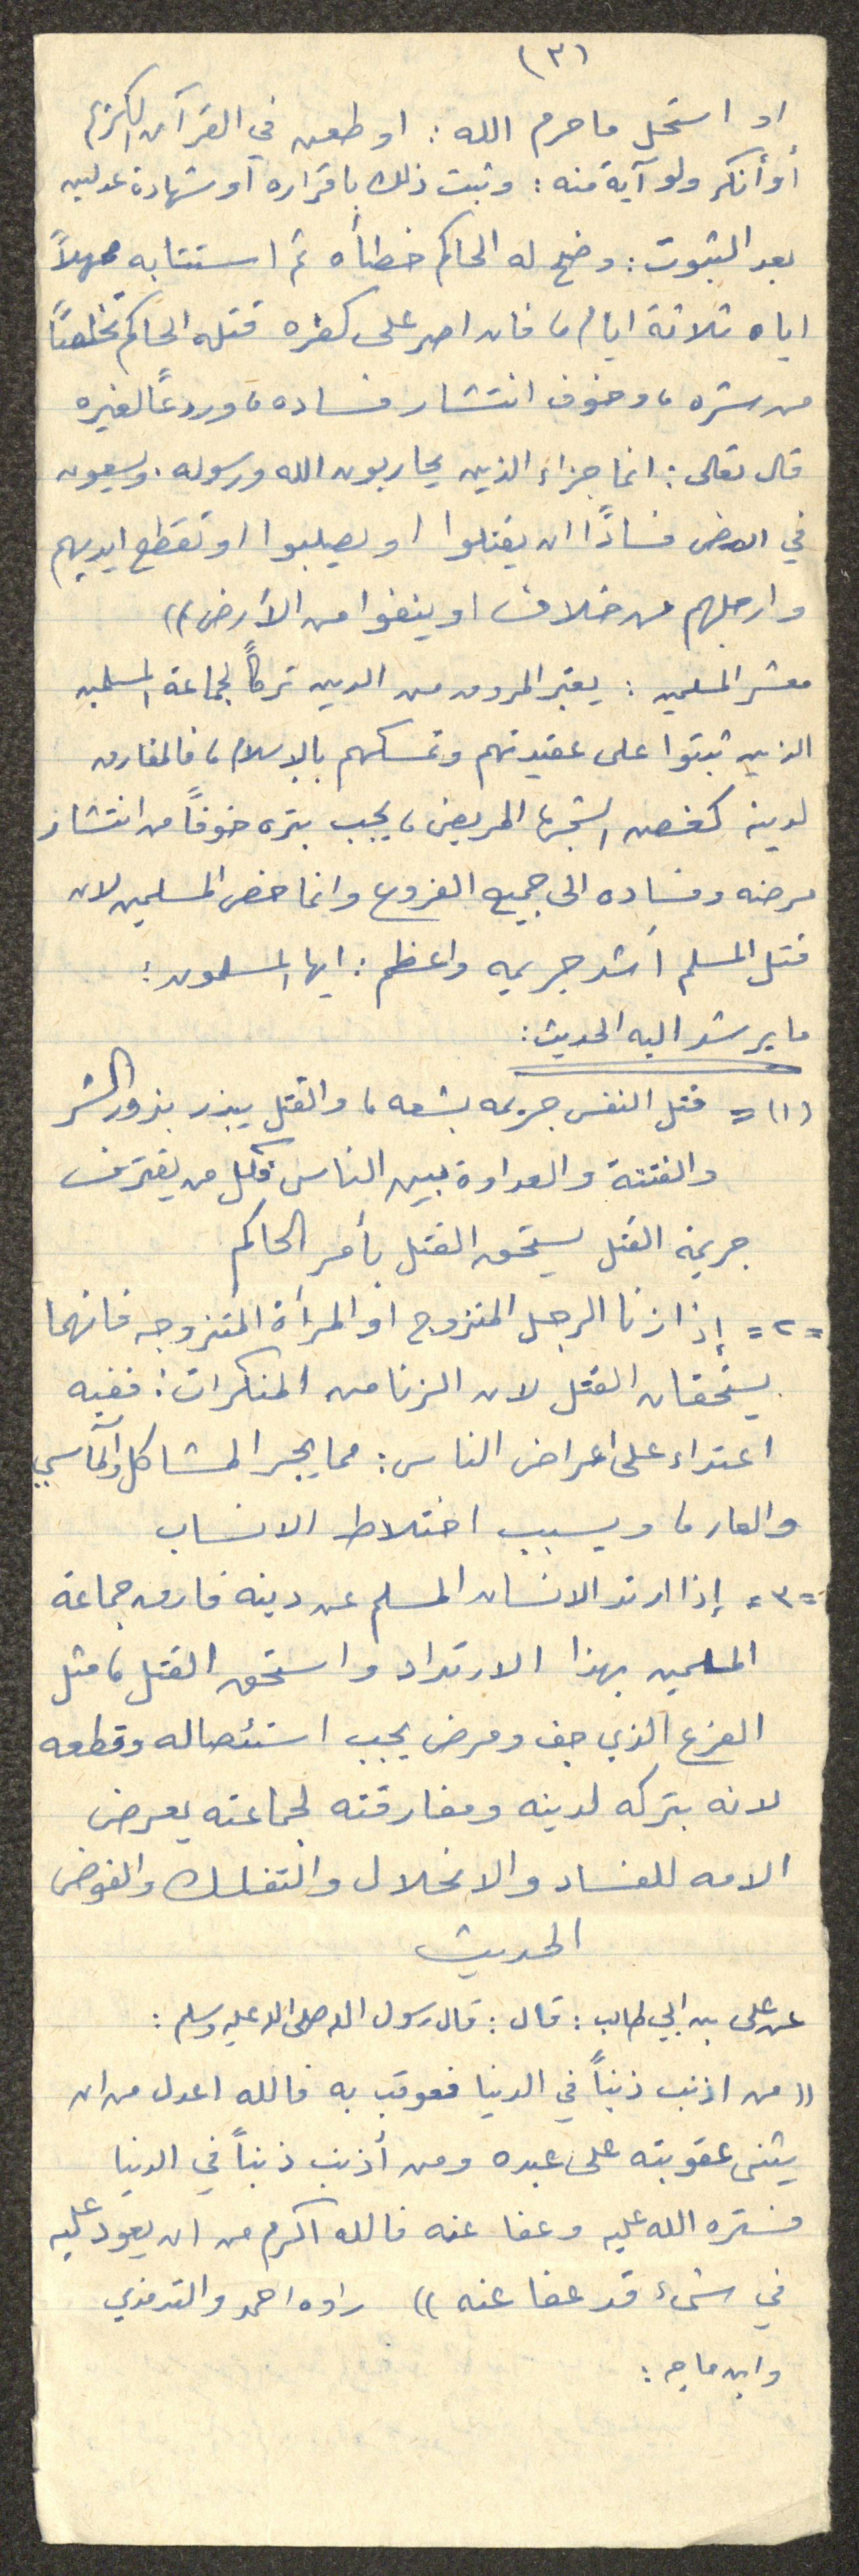 (٣)
او استحل ما حرم الله : او طعن في القرآن الكريم
أو أنكر ولو آية منه : وثبت ذلك باقراره أو شهادة عدلين
بعد الثبوت : وضح له الحاكم خطأه ثم استتابه مهلاً
اياه ثلاثة ايام ، فان اصر على كفره قتله الحاكم تخلصاً
من شره ، وخوف انتشار فساده ، وردعاً لغيره
قال تعالى : انما جزاء الذين يحاربون الله ورسوله . ويسعون
في الارض فساداً ان يقتلوا او يصلبوا او تقطع ايديهم
وارجلهم من خلاف او ينفوا من الأرض ))
معشر المسلمين : يعتبر المروق من الدين تركاً لجماعة المسلمين
الذين ثبتوا على عقيدتهم وتمسكهم بالإسلام ، فالمفارق
لدينه كغصن الشجرة المريض ، يجب بتره خوفاً من انتشار
مرضه وفساده الى جميع الفروع وانما خص المسلمين لان
قتل المسلم أشد جريمه واعظم : ايها المسلمون :
ما يرشد اليه الحديث :
(١) = قتل النفس جريمه بشعه ، والقتل يبذر بذور الشر
والفتنة والعداوة بين الناس فكل من يقترف
جريمة القتل يستحق القتل بأمر الحاكم
= ٢ = إذا زنا الرجل المتزوج او المرأة المتزوجه فانهما
يستحقان القتل لان الزنا من المنكرات : ففيه
اعتداء على اعراض الناس : مما يجر المشاكل والمآسي
والعار ، ويسبب اختلاط الانساب
= ٣ = إذا ارتد الانسان المسلم عن دينه فارق جماعة
المسلمين بهذا الارتداد واستحق القتل ، مثل
الفرع الذي جف ومرض يجب استئصاله وقطعه
لانه بتركه لدينه ومفارقته لجماعته يعرض
الامه للفساد والانحلال والتفكك والفوضى
الحديث
عن على بن ابي طالب : قال : قال رسول الله صلى الله عليه وسلم :
(( من اذنب ذنباً في الدنيا فعوقب به فالله اعدل من ان
يثنى عقوبته على عبده ومن أذنب ذنباً في الدنيا
فستره الله عليه وعفا عنه فالله اكرم من ان يعود عليه
في شىء قد عفا عنه )) راوه احمد والترمذي
وابن ماجه :